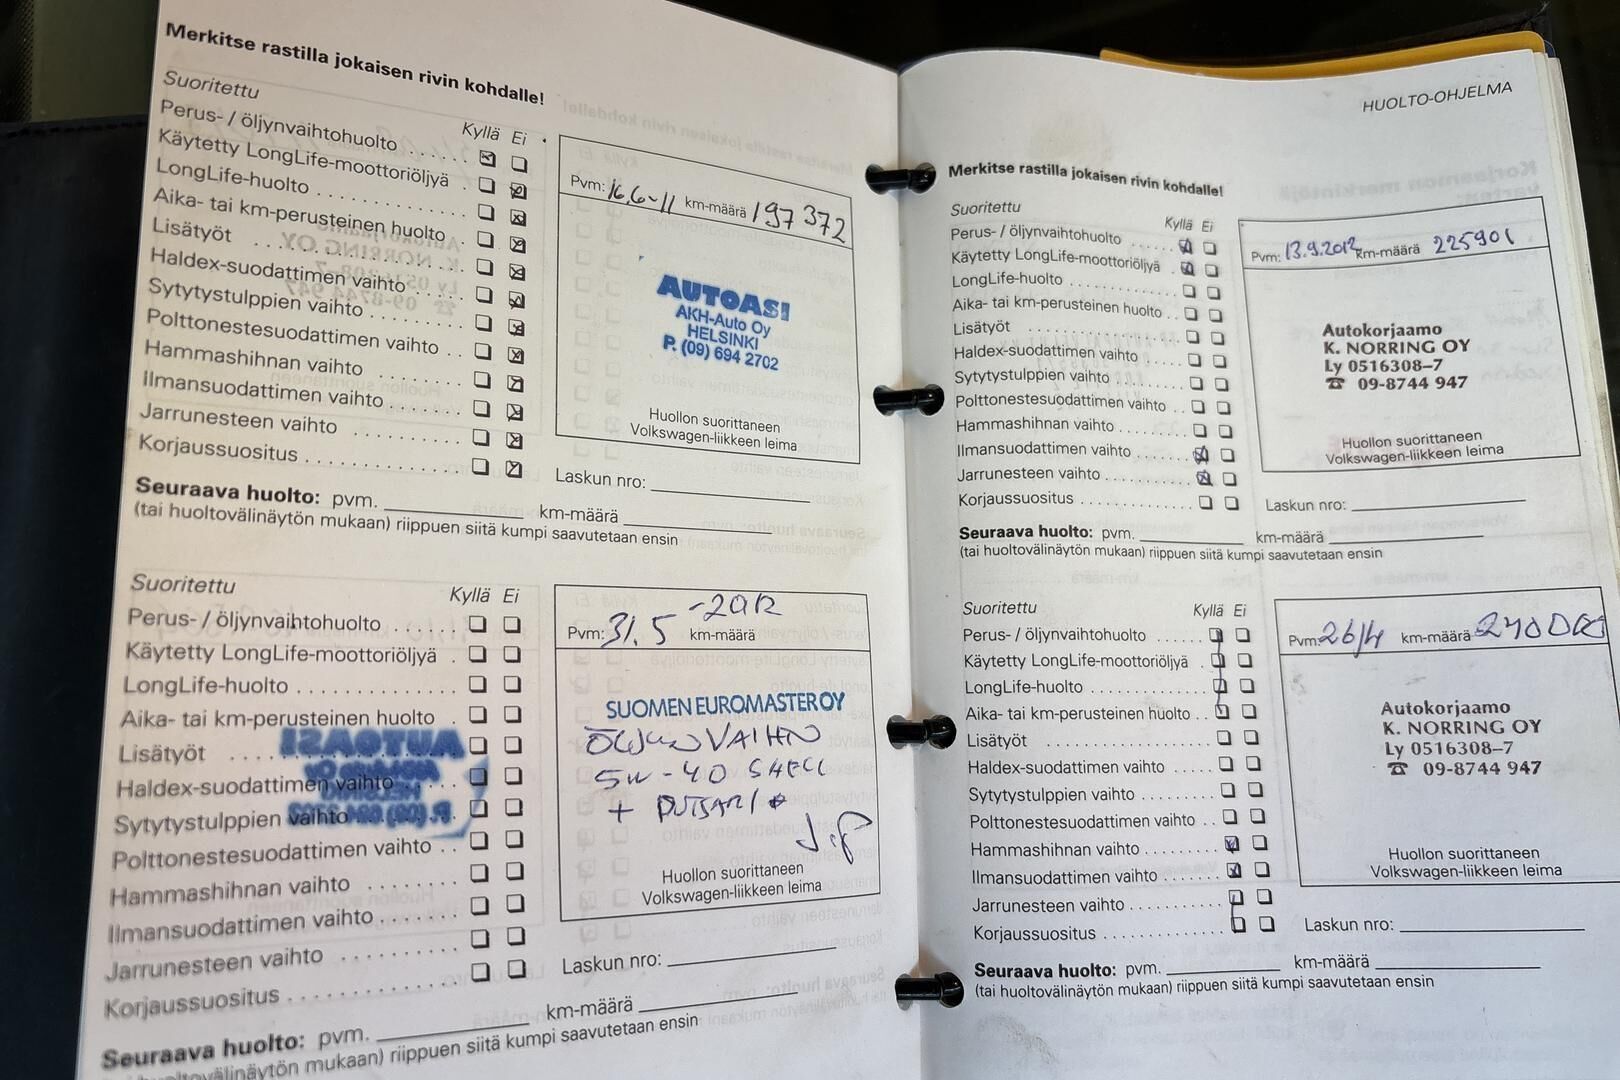 Merkitse rastilla jokaisen rivin kohdalle!
Suoritettu
Kyllä Ei
Perus- / öljynvaihtohuolto
Käytetty LongLife-moottoriöljyä
LongLife-huolto
Aika- tai km-perusteinen huolto
Lisätyöt
Haldex-suodattimen vaihto
Sytytystulppien vaihto
Polttonestesuodattimen vaihto
Hammashihnan vaihto
Ilmansuodattimen vaihto
Jarrunesteen vaihto
Korjaussuositus
Pvm: 16.6-11 km-määrä 197372
AUTOASI
AKH-Auto Oy
HELSINKI
P. (09) 694 2702
Huollon suorittaneen
Volkswagen-liikkeen leima
Laskun nro:
Seuraava huolto: pvm. km-määrä
(tai huoltovälinäytön mukaan) riippuen siitä kumpi saavutetaan ensin
Suoritettu
Kyllä Ei
Perus- / öljynvaihtohuolto
Käytetty LongLife-moottoriöljyä
LongLife-huolto
Aika- tai km-perusteinen huolto
Lisätyöt
Haldex-suodattimen vaihto
Sytytystulppien vaihto
Polttonestesuodattimen vaihto
Hammashihnan vaihto
Ilmansuodattimen vaihto
Jarrunesteen vaihto
Korjaussuositus
Pvm: 31.5 -2012 km-määrä
SUOMEN EUROMASTER OY
5W-40 SHELL
+
Huollon suorittaneen
Volkswagen-liikkeen leima
Laskun nro:
Seuraava huolto: pvm. km-määrä
(tai huoltovälinäytön mukaan) riippuen siitä kumpi saavutetaan ensin
HUOLTO-OHJELMA
Merkitse rastilla jokaisen rivin kohdalle!
Suoritettu
Kyllä Ei
Perus- / öljynvaihtohuolto
Käytetty LongLife-moottoriöljyä
LongLife-huolto
Aika- tai km-perusteinen huolto
Lisätyöt
Haldex-suodattimen vaihto
Sytytystulppien vaihto
Polttonestesuodattimen vaihto
Hammashihnan vaihto
Ilmansuodattimen vaihto
Jarrunesteen vaihto
Korjaussuositus
Pvm: 13.9.2012 km-määrä 225901
Autokorjaamo
K. NORRING OY
Ly 0516308-7
☎ 09-8744 947
Huollon suorittaneen
Volkswagen-liikkeen leima
Laskun nro:
Seuraava huolto: pvm. km-määrä
(tai huoltovälinäytön mukaan) riippuen siitä kumpi saavutetaan ensin
Suoritettu
Kyllä Ei
Perus- / öljynvaihtohuolto
Käytetty LongLife-moottoriöljyä
LongLife-huolto
Aika- tai km-perusteinen huolto
Lisätyöt
Haldex-suodattimen vaihto
Sytytystulppien vaihto
Polttonestesuodattimen vaihto
Hammashihnan vaihto
Ilmansuodattimen vaihto
Jarrunesteen vaihto
Korjaussuositus
Pvm: 26/4 km-määrä
Autokorjaamo
K. NORRING OY
Ly 0516308-7
☎ 09-8744 947
Huollon suorittaneen
Volkswagen-liikkeen leima
Laskun nro:
Seuraava huolto: pvm. km-määrä
(tai huoltovälinäytön mukaan) riippuen siitä kumpi saavutetaan ensin